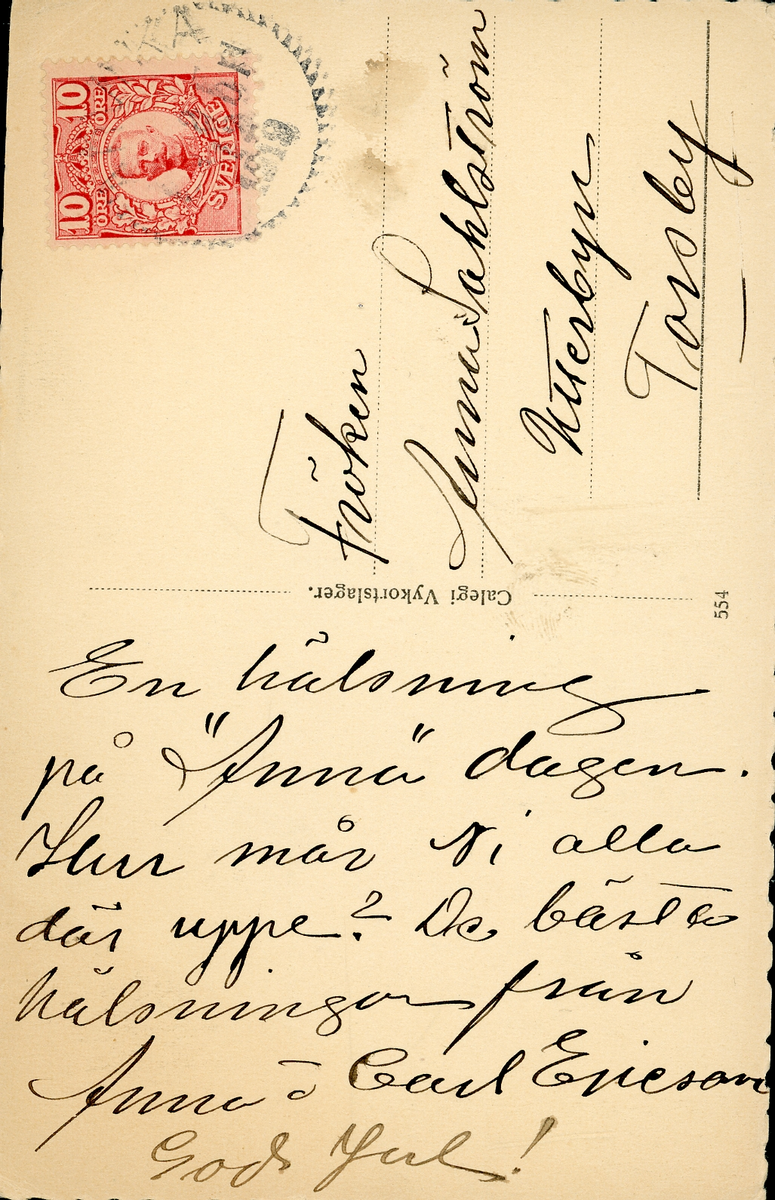 10 ÖRE
10 ÖRE
SVERIGE
Fröken
Anna Sahlström
Utterbyn
Torsby
Calegi Vykortslager.
554
En hälsning
på "Anna" dagen.
Hur mår Ni alla
där uppe? De bästa
hälsningar från
Anna o Carl Ericson
God Jul!